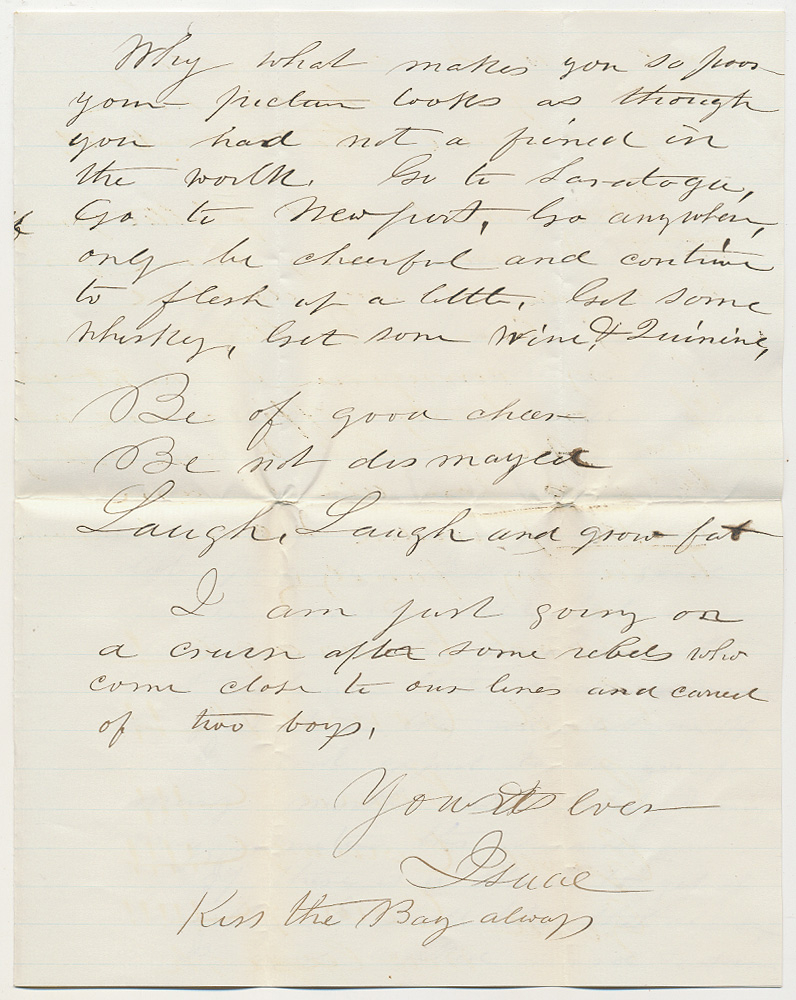 Why what makes you so poor
your picture looks as though
you had not a friend in
the world. Go to Saratoga,
Go to Newport, Go anywhere,
only be cheerful and continue
to flesh up a little, Get some
whiskey, Get some Wine, & Quinine,
Be of good cheer
Be not dismayed
Laugh, Laugh and grow fat
I am just going on
a cruise after some rebels who
come close to our lines and carried
of two boys,
Yours ever
Isaac
Kiss the Boy always